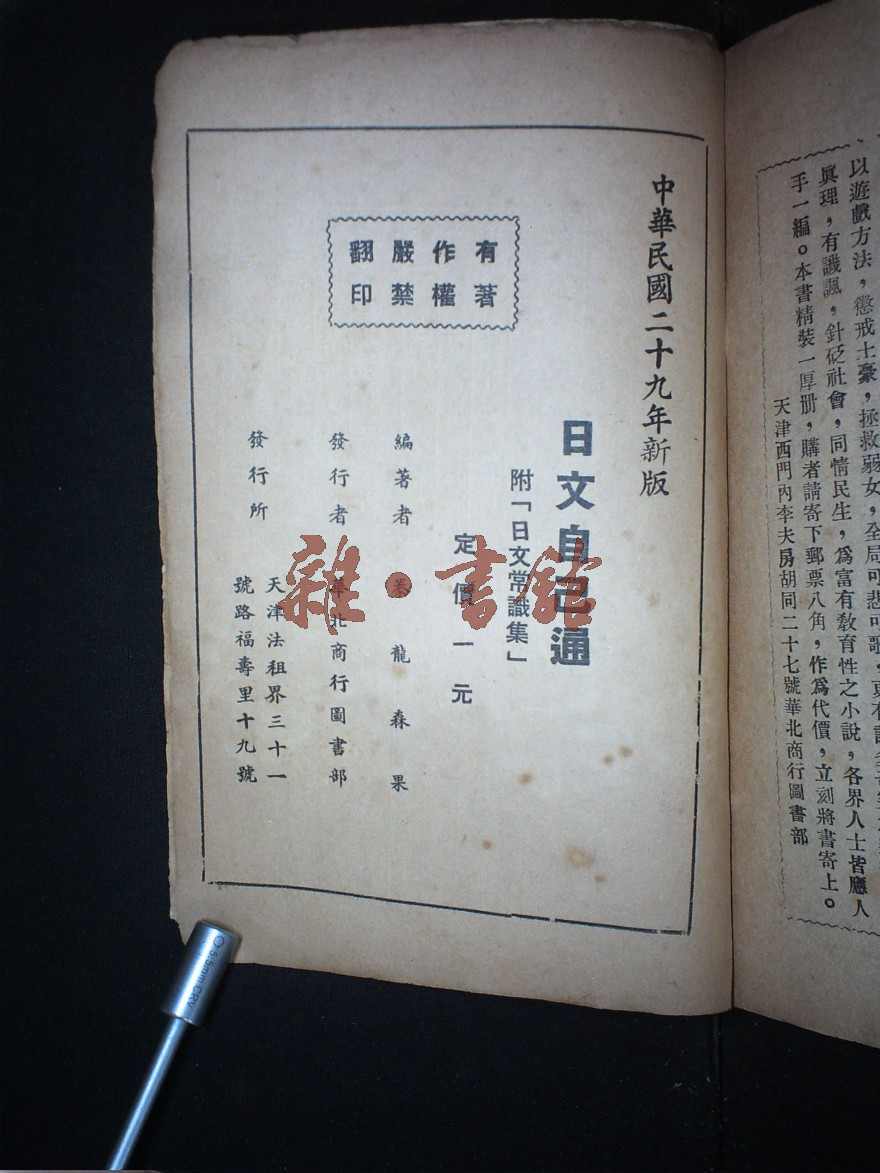 以遊戲方法，懲戒土豪，拯救弱女，全局可悲可歌，更有
眞理，有譏諷，針砭社會，同情民生，爲富有敎育性之小說，各界人士皆應人
手一編。本書精裝一厚册，購者請寄下郵票八角，作爲代價，立刻將書寄上。
天津西門內李夫房胡同二十七號華北商行圖書部
中華民國二十九年新版
日文自己通
附「日文常識集」
有著
作權
嚴禁
翻印
定價一元
編著者　龍森果
發行者　華北商行圖書部
發行所　天津法租界三十一
號路福壽里十九號
雜·書館
5.5mm CRV